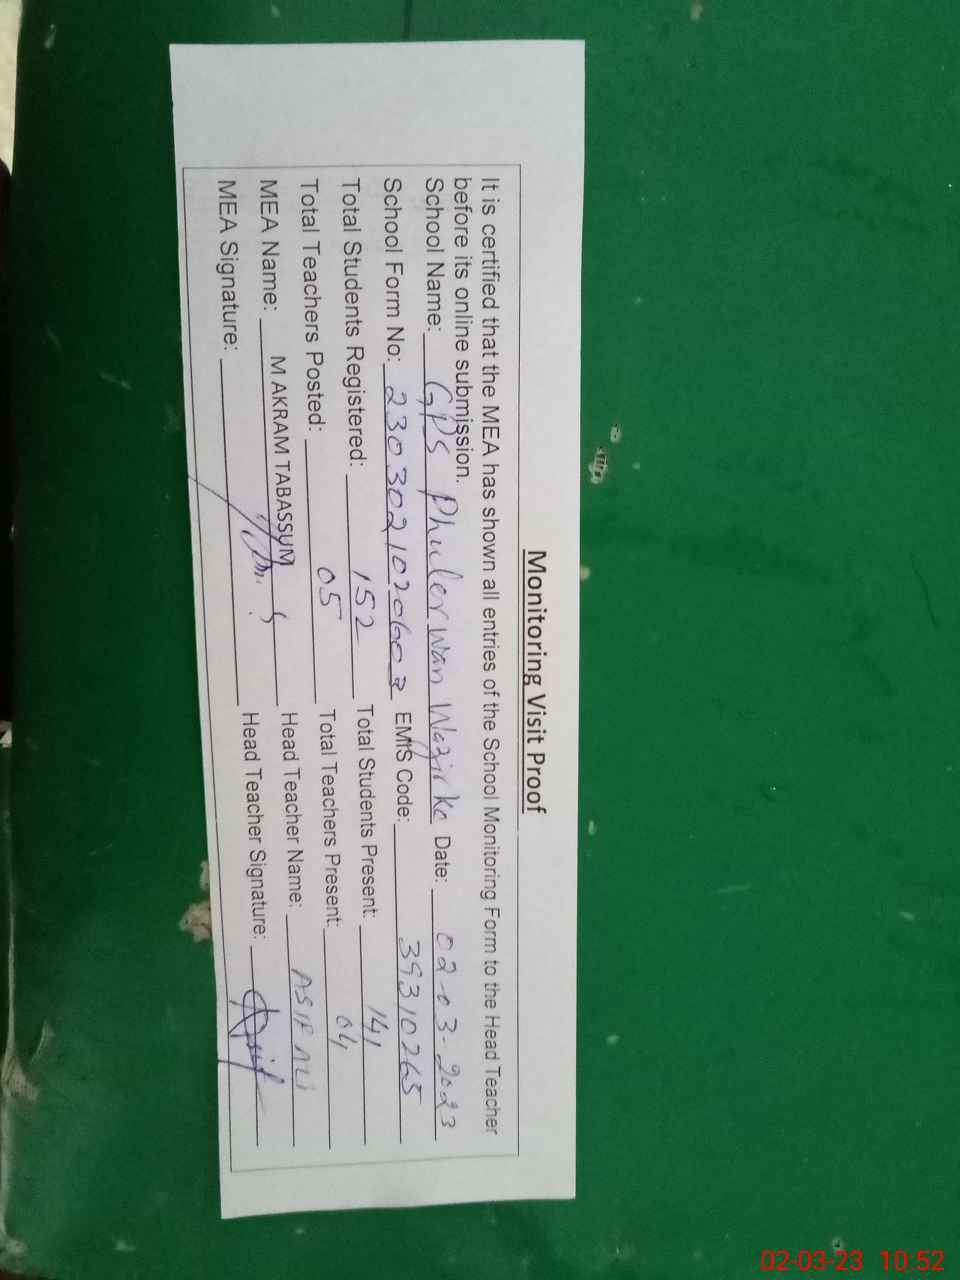 Monitoring Visit Proof
It is certified that the MEA has shown all entries of the School Monitoring Form to the Head Teacher
before its online submission.
School Name: GPS Phulerwan Wazirke Date: 02-03-2023
School Form No: EMIS Code: 39310265
Total Students Registered: 152 Total Students Present: 141
Total Teachers Posted: 05 Total Teachers Present: 04
MEA Name: M AKRAM TABASSUM Head Teacher Name: ASIF ALI
MEA Signature: Head Teacher Signature: Asif
02-03-23 10:52